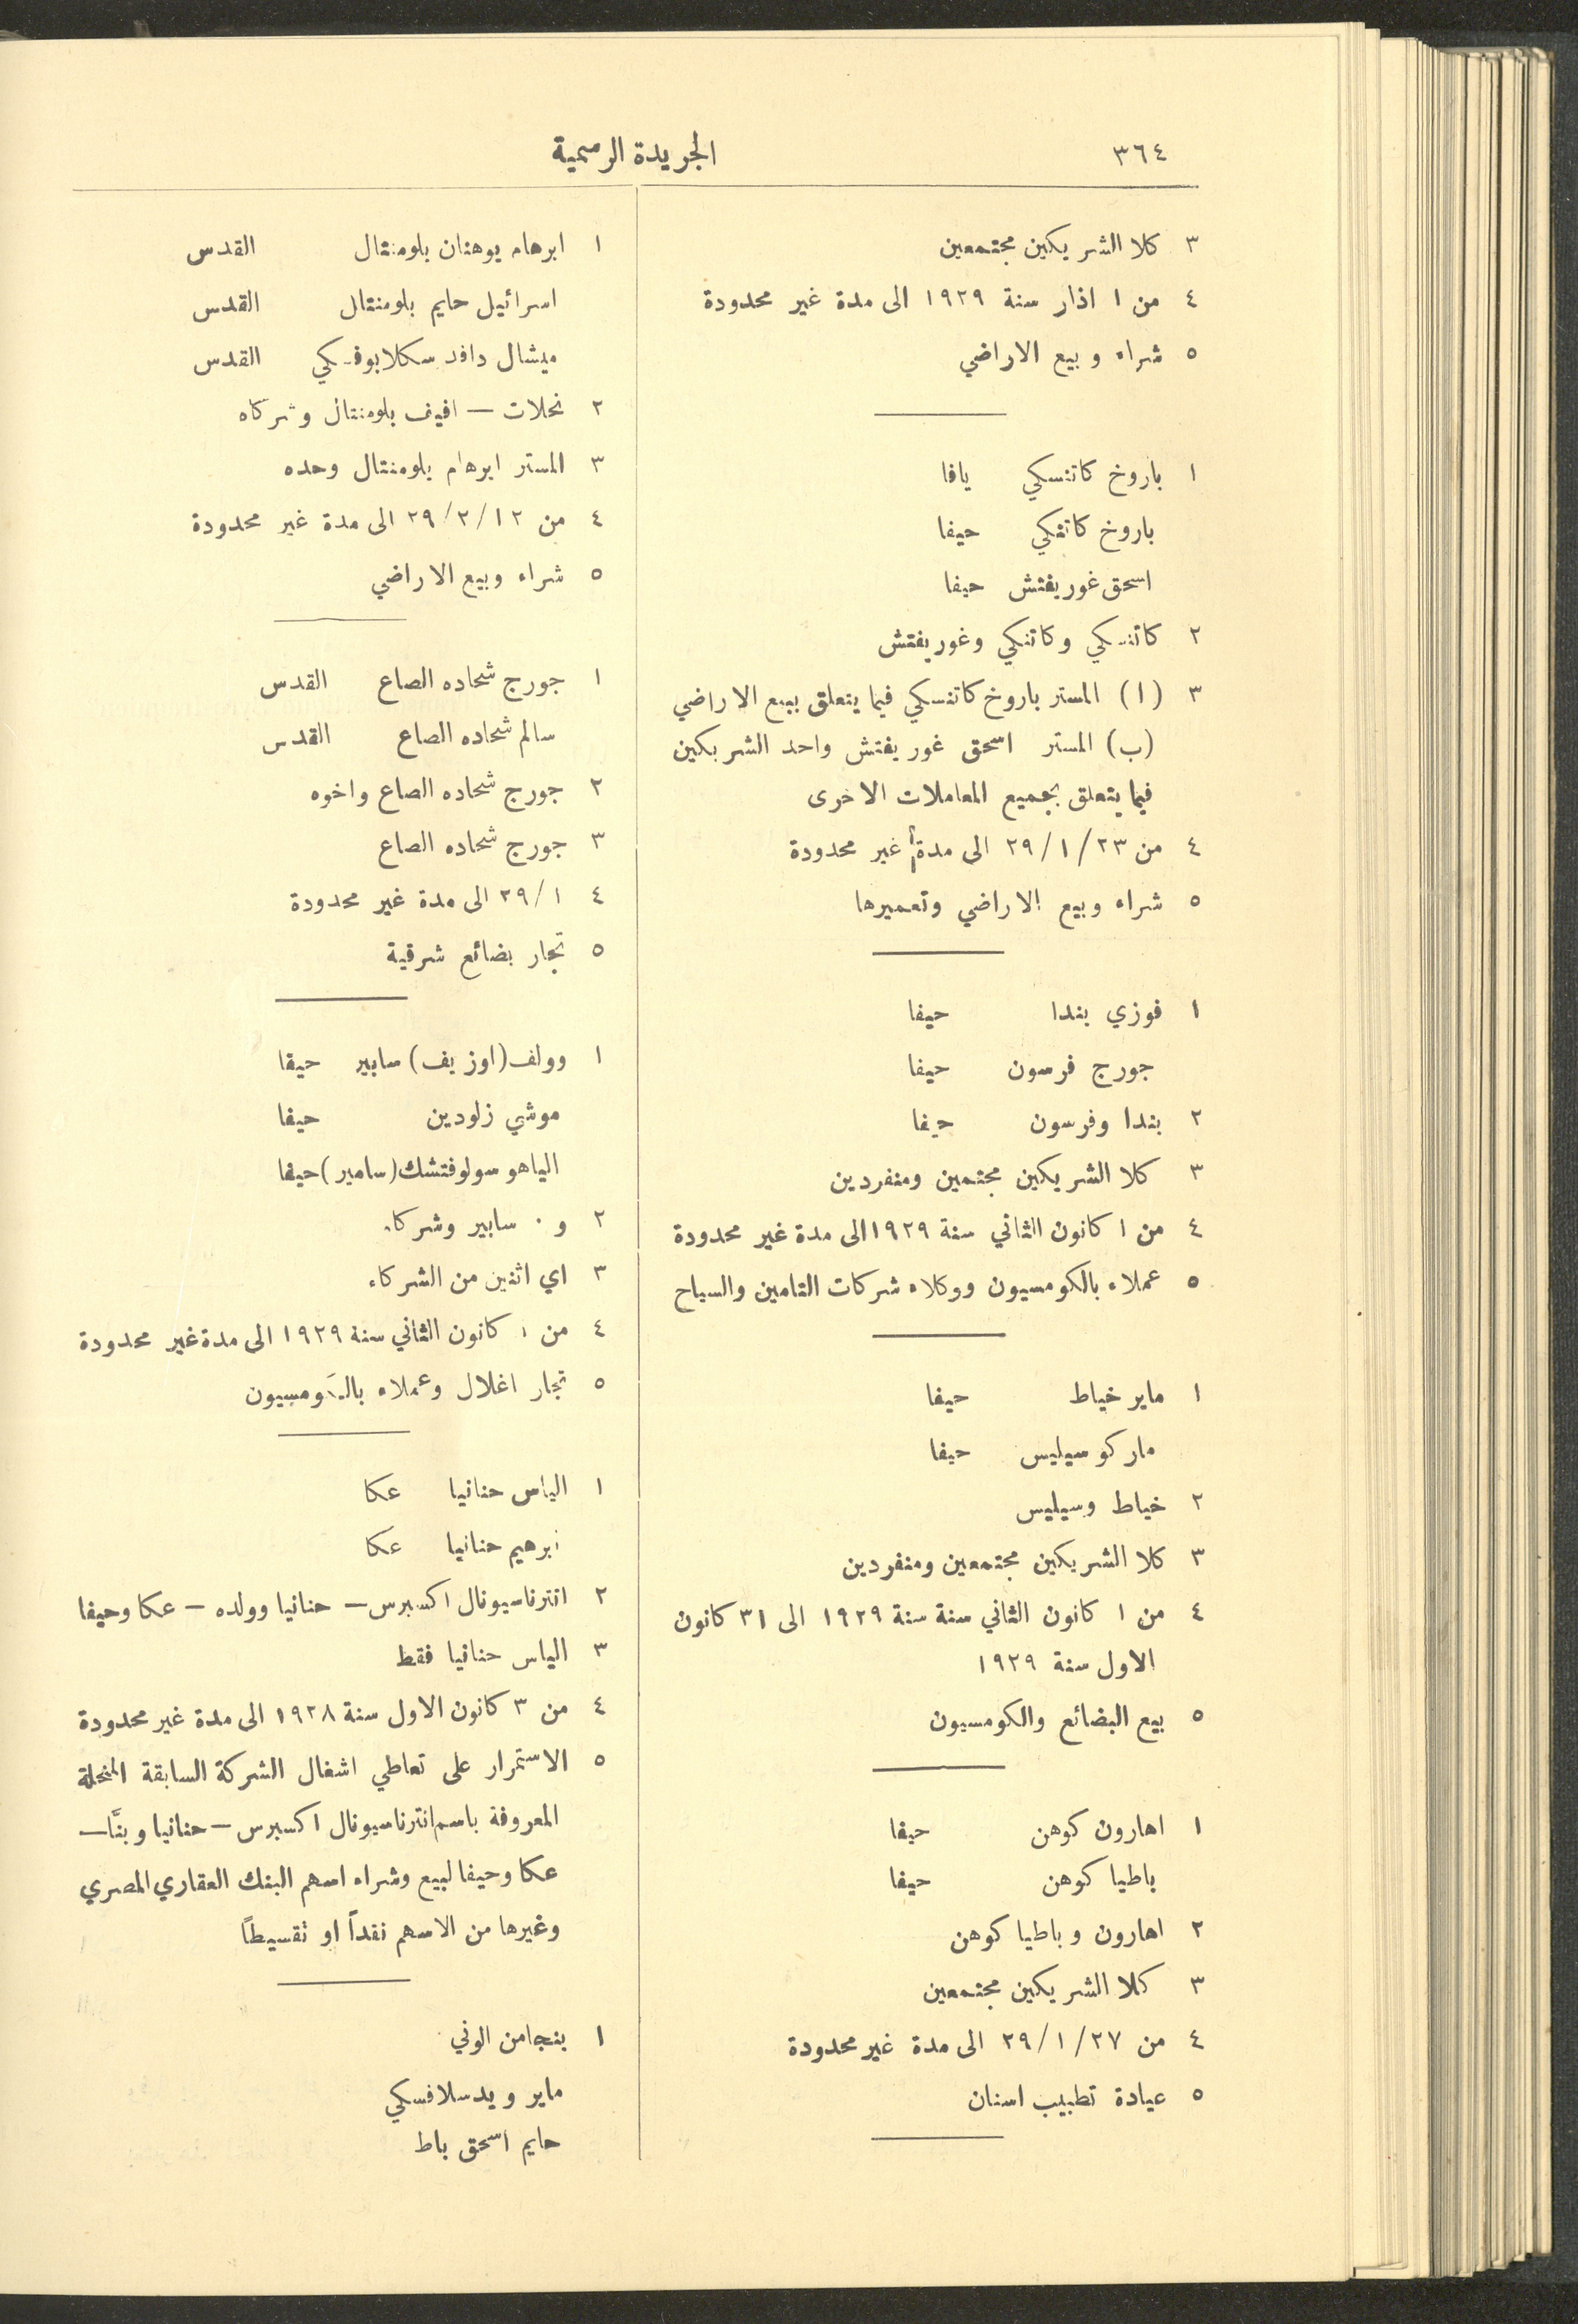 ٣٦٤
الجريدة الرسمية
٣ كلا الشريكين مجتمعين
٤ من ١ اذار سنة ١٩٢٩ الى مدة غير محدودة
٥ شراء وبيع الاراضي
١ باروخ كاتنسكي يافا
باروخ كاتنكي حيفا
اسحق غوريفتش حيفا
٢ كاتنسكي وكاتنكي وغوريفتش
٣ (ا) المستر باروخ كاتنسكي فيما يتعلق ببيع الاراضي
(ب) المستر اسحق غوريفتش واحد الشريكين
فيما يتعلق بجميع المعاملات الاخرى
٤ من ٢٣/١/٢٩ الى مدة غير محدودة
٥ شراء وبيع الاراضي وتعميرها
١ فوزي بندا حيفا
جورج فرسون حيفا
٢ بندا وفرسون حيفا
٣ كلا الشريكين مجتمعين ومنفردين
٤ من ١ كانون الثاني سنة ١٩٢٩ الى مدة غير محدودة
٥ عملاء بالكومسيون ووكلاء شركات التامين والسياح
١ ماير خياط حيفا
ماركو سيليس حيفا
٢ خياط وسيليس
٣ كلا الشريكين مجتمعين ومنفردين
٤ من ١ كانون الثاني سنة سنة ١٩٢٩ الى ٣١ كانون
الاول سنة ١٩٢٩
٥ بيع البضائع والكومسيون
١ اهارون كوهن حيفا
باطيا كوهن حيفا
٢ اهارون وباطيا كوهن
٣ كلا الشريكين مجتمعين
٤ من ٢٧/١/٢٩ الى مدة غير محدودة
٥ عيادة تطبيب اسنان
١ ابرهام يوهنان بلومنتال القدس
اسرائيل حايم بلومنتال القدس
ميشال دافد سكلابوفسكي القدس
٢ نحلات — افيف بلومنتال وشركاه
٣ المستر ابرهام بلومنتال وحده
٤ من ١٢/٢/٢٩ الى مدة غير محدودة
٥ شراء وبيع الاراضي
١ جورج شحاده الصاع القدس
سالم شحاده الصاع القدس
٢ جورج شحاده الصاع واخوه
٣ جورج شحاده الصاع
٤ ٢٩/١ الى مدة غير محدودة
٥ تجار بضائع شرقية
١ وولف (اوزيف) سابير حيفا
موشي زلودين حيفا
الياهو سولوفتشك (سامير) حيفا
٢ و . سابير وشركاه
٣ اي اثنين من الشركاء
٤ من ١ كانون الثاني سنة ١٩٢٩ الى مدة غير محدودة
٥ تجار اغلال وعملاء بالكومسيون
١ الياس حنانيا عكا
ابرهيم حنانيا عكا
٢ انترناسيونال اكسبرس — حنانيا وولده — عكا وحيفا
٣ الياس حنانيا فقط
٤ من ٣ كانون الاول سنة ١٩٢٨ الى مدة غير محدودة
٥ الاستمرار على تعاطي اشغال الشركة السابقة المنحلة
المعروفة باسم انترناسيونال اكسبرس — حنانيا وبنَّا —
عكا وحيفا لبيع وشراء اسهم البنك العقاري المصري
وغيرها من الاسهم نقداً او تقسيطاً
١ بنجامن الوني
ماير ويدسلافسكي
حايم اسحق باط